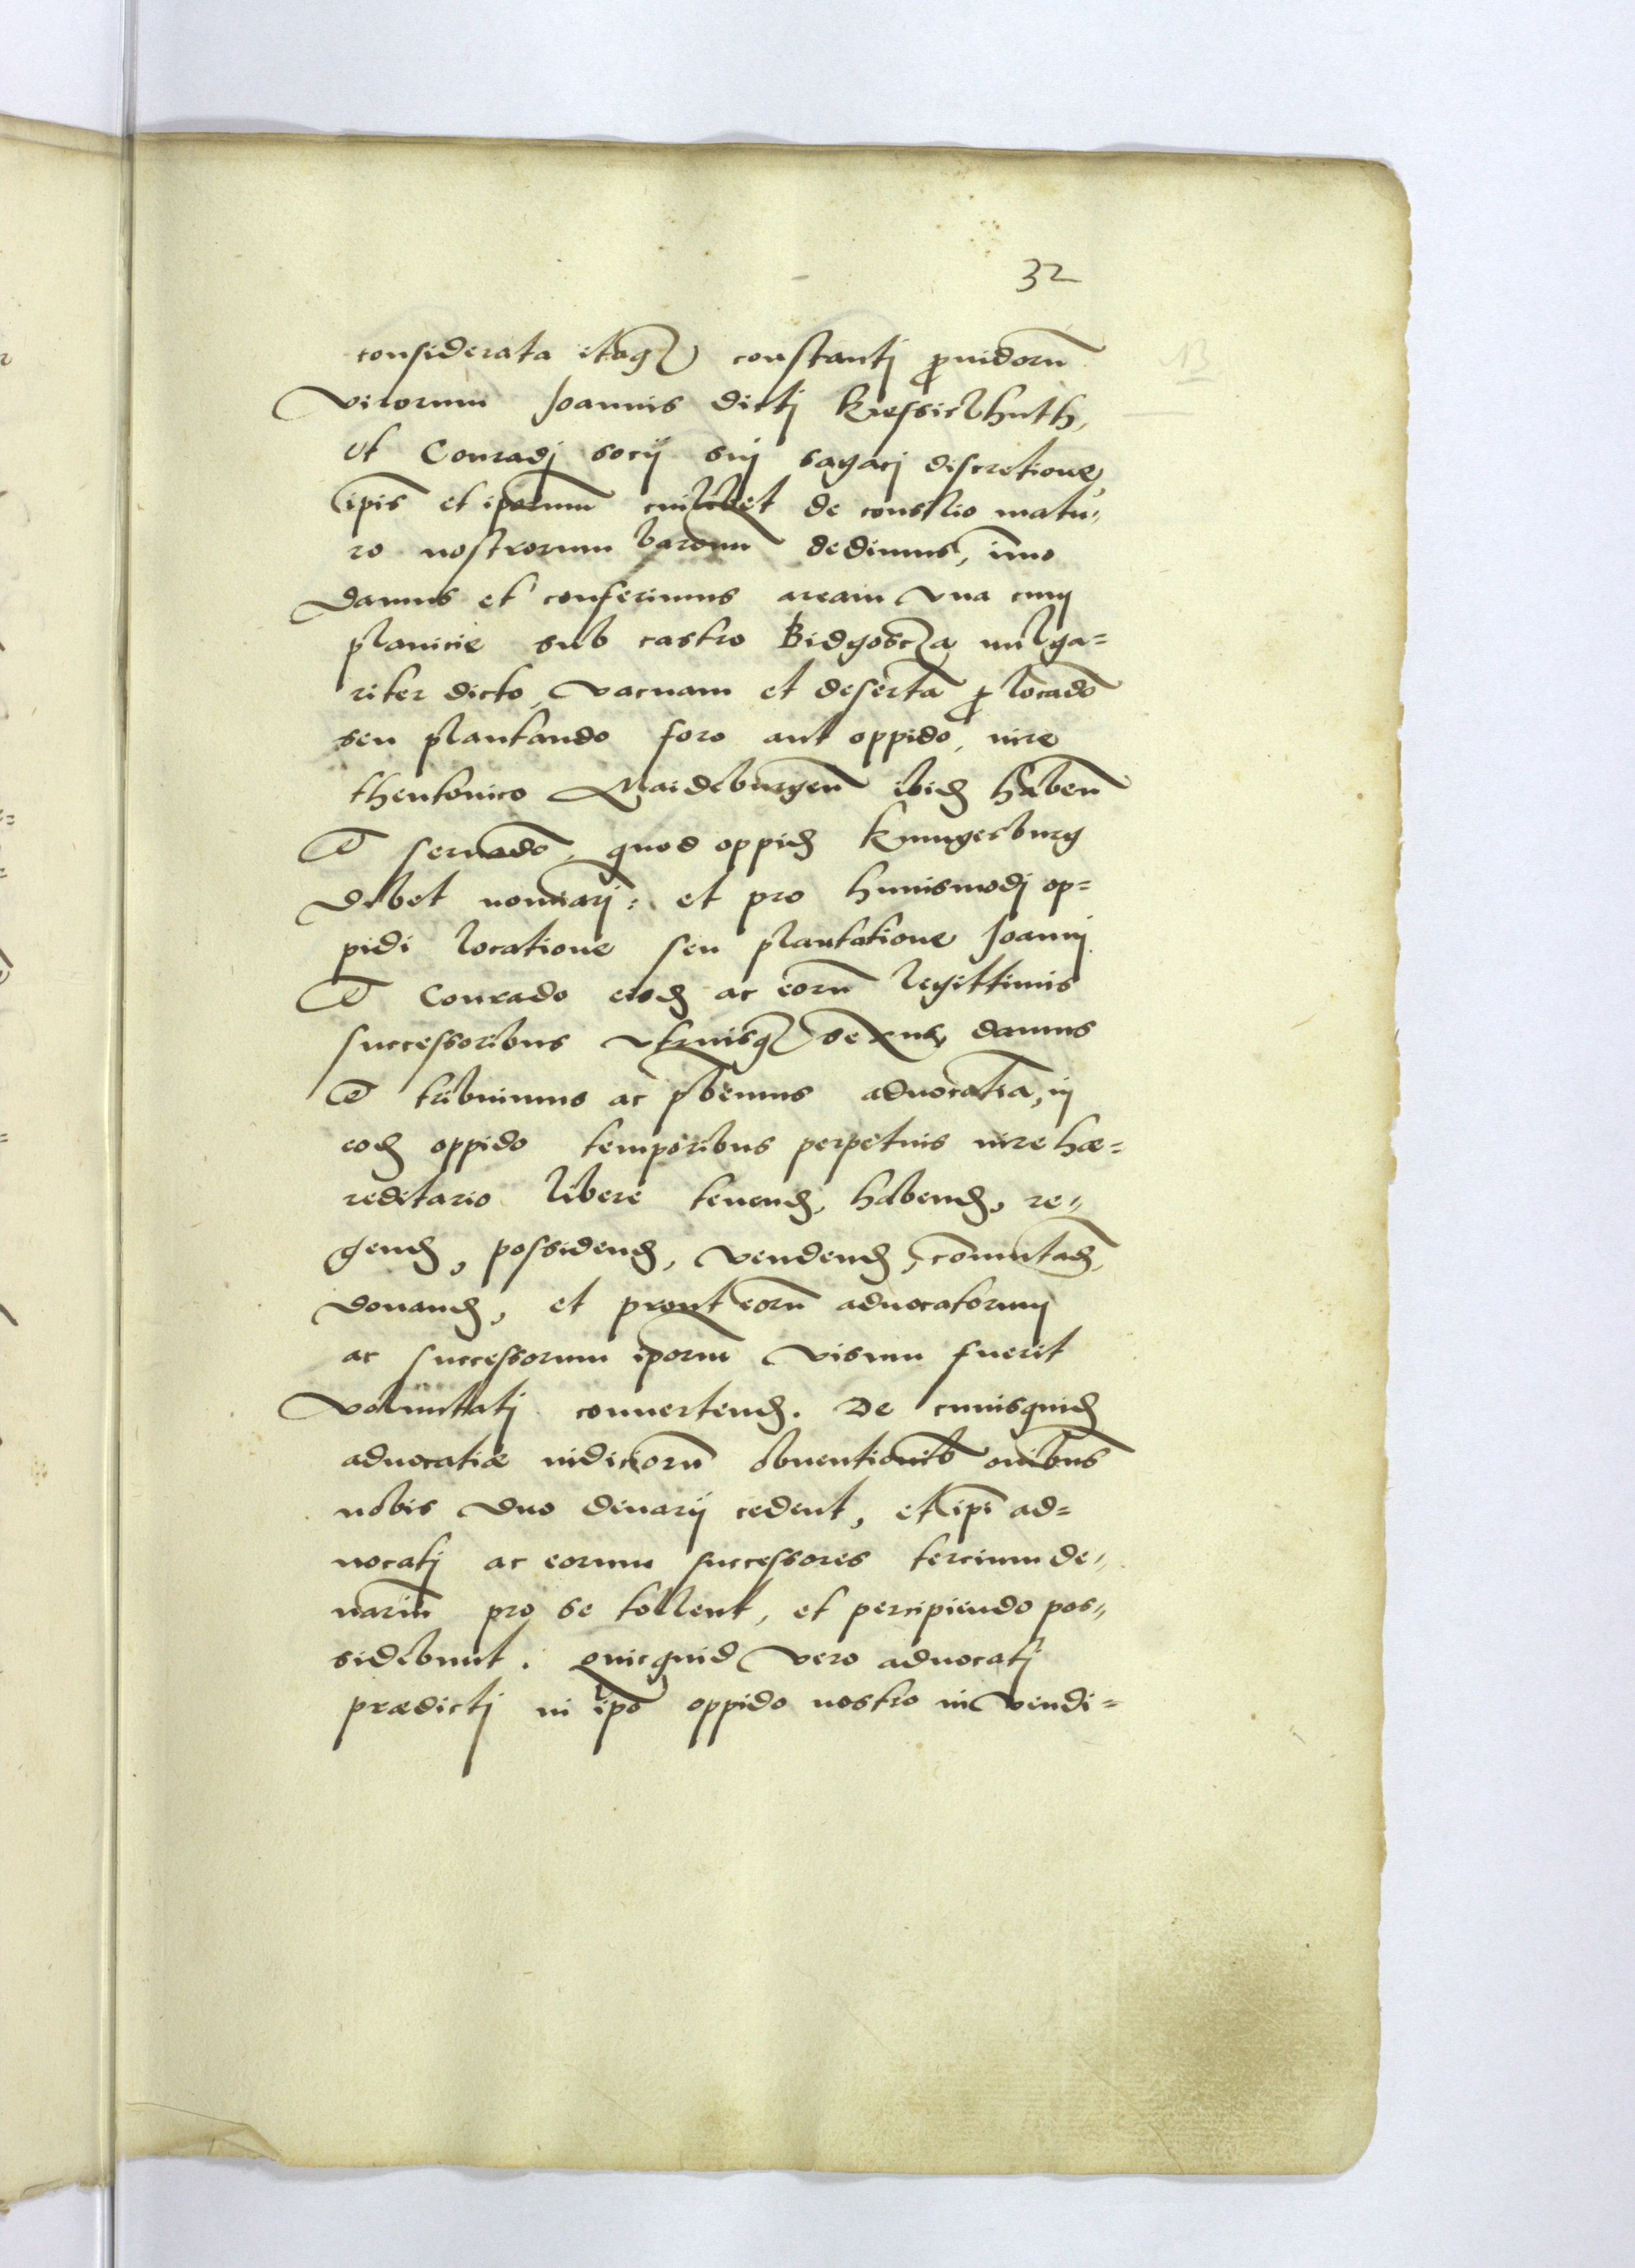 32
13
considerata itaq₃ constantj ꝓuidorū
virorum Joannis dictj Kressielhuth,
et Conradj socij suj sagacj discretione,
ip̄is et ip̄orum cuilibet de consilio matu„
ro nostrorum baronū dedimus, im̄o
damus et conferimus aream vna cum
planicie sub castro Bidgoscza uulga=
riter dicto, vacuam et desertā ꝓ locādo
seu plantando foro aut oppido, iure
theutonico Maideburgeñ ibidꝫ habeñ
et seruādo, quod oppidꝫ Kunigesburg
debet nominarj: et pro huiusmodj op=
pidi locatione seu plantatione Joannj
et Conrado eisdꝫ ac eorū legittimis
successoribus vtriusq₃ sexus, damus
et tribuimus ac p̄bemus aduocatiā, in
eodꝫ oppido temporibus perpetuis iure hæ=
reditario libere tenendꝫ, habendꝫ, re„
gendꝫ, possidendꝫ, vendendꝫ, com̄utādꝫ,
donandꝫ, et prout eorū aduocatorum
ac successorum ip̄orum visum fuerit
voluntatj conuertendꝫ. De cuiusquidꝫ
aduocatiæ iudiciorū obuentionib₉ om̄ibus
nobis duo denarij cedent, et ip̄i ad=
uocatj ac eorum successores tercium de„
nariū pro se tollent, et percipiendo pos„
sidebunt. Quicquid vero aduocatj
prædictj in ip̄o oppido nostro in vendi=